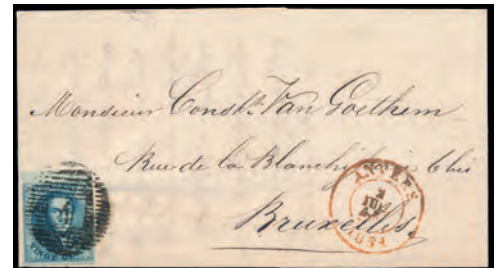 Monsieur Const. Van Goethem
Rue de la Blanchisserie 6 bis
Bruxelles.
ANVERS
1851
VINGT